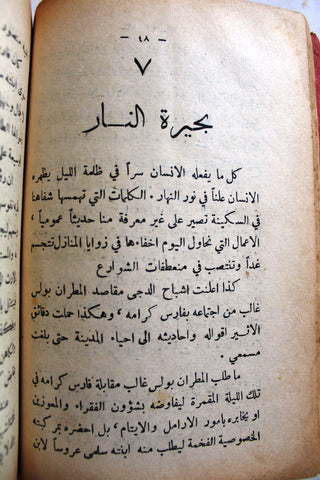 — ٤٨ —
٧
بحيرة النار
كل ما يفعله الانسان سراً في ظلمة الليل يظهره
الانسان علناً في نور النهار. الكلمات التي تهمسها شفاهنا
في السكينة تصير على غير معرفة منا حديثاً عمومياً،
الاعمال التي نحاول اليوم اخفاءها في زوايا المنازل تتجسم
غداً وتنتصب في منعطفات الشوارع
كذا اعلنت اشباح الدجى مقاصد المطران بولس
غالب من اجتماعه بفارس كرامه، وهكذا حملت دقائق
الاثير اقواله واحاديثه الى احياء المدينة حتى بلغت
مسمعي.
ما طلب المطران بولس غالب مقابلة فارس كرامه في
تلك الليلة المقمرة ليفاوضه بشؤون الفقراء والمعوزين
او يخابره بامور الارامل والايتام، بل احضره بمركبته
الخصوصية الفخمة ليطلب منه ابنته سلمى عروساً لابن